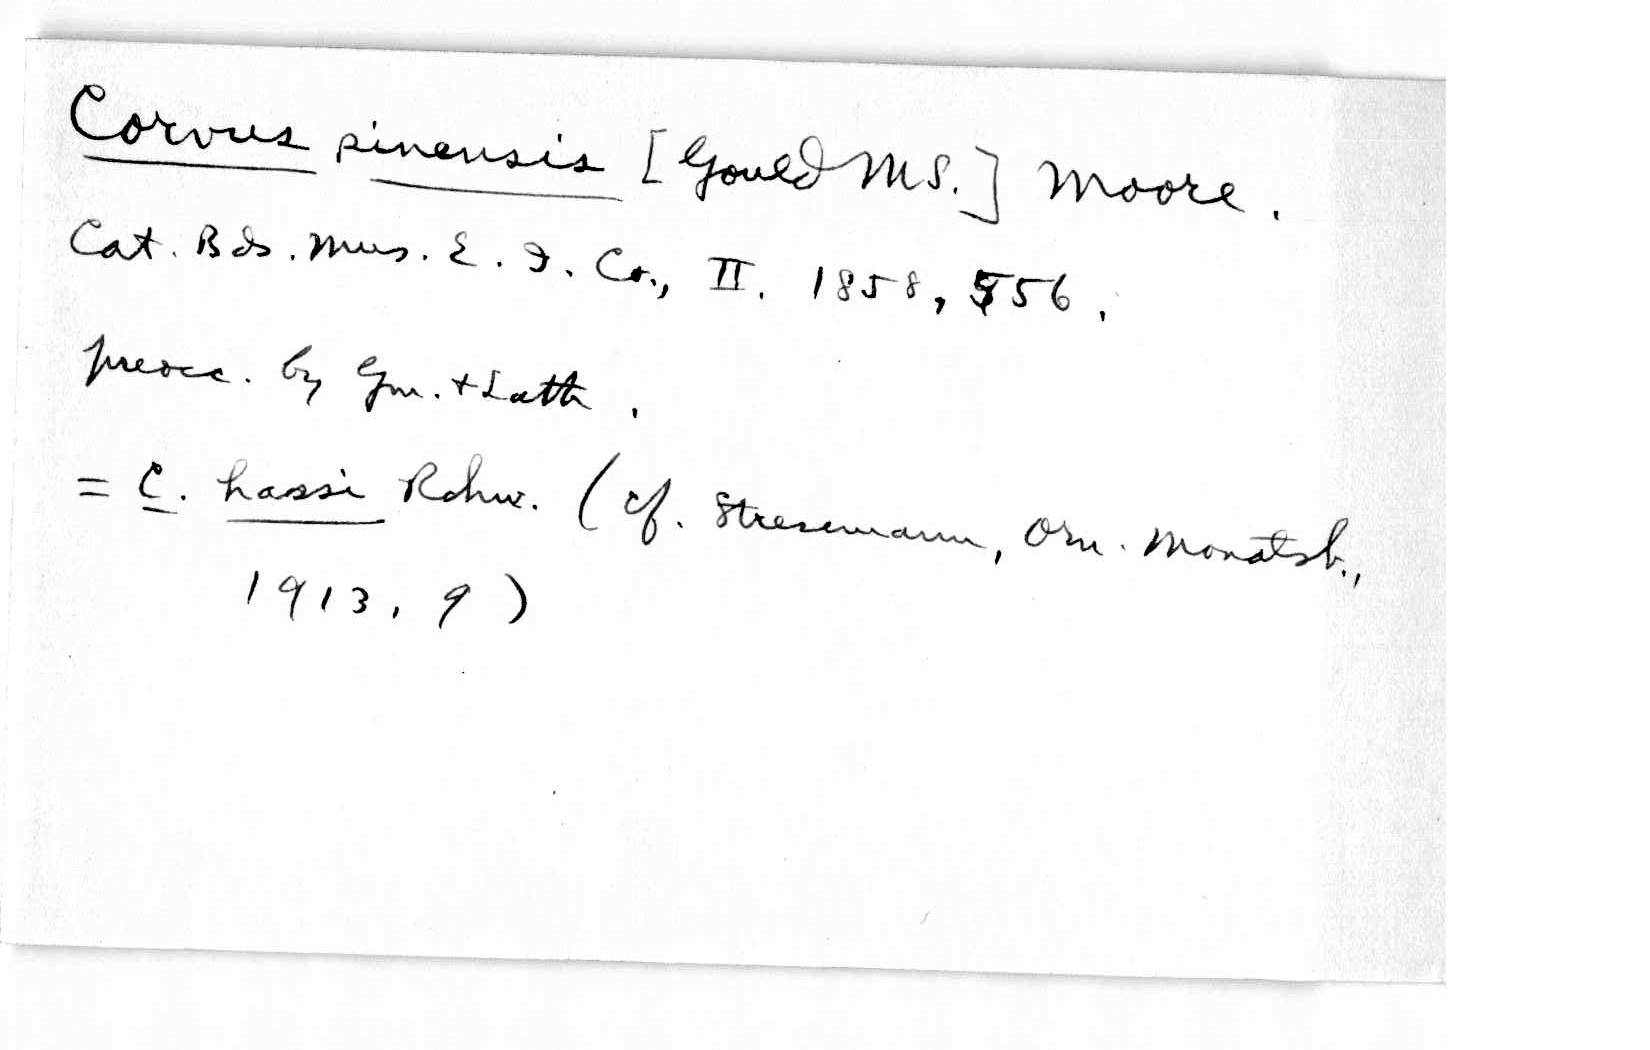 Corvus sinensis [Gould MS.] Moore.
Cat. Bds. Mus. E. I. Co., II. 1858, 556.
preocc. by Gm. + Lath.
= C. hassi Rchw. (cf. Stresemann, Orn. Monatsb.,
1913, 9)